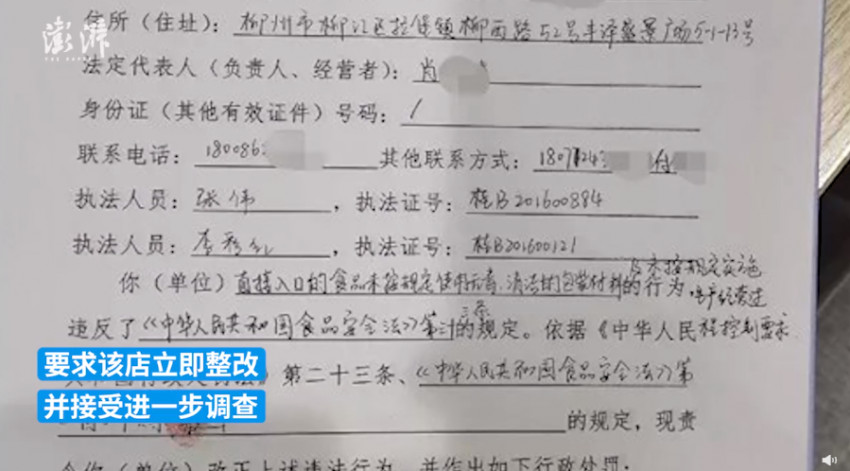 澎湃
住所（住址）：柳州市柳江区拉堡镇柳西路52号丰泽盛景广场5-1-13号
法定代表人（负责人、经营者）：肖
身份证（其他有效证件）号码：/
联系电话：180086 其他联系方式：1807124
执法人员：张伟，执法证号：桂B201600884
执法人员：李彩红，执法证号：桂B201600121
及未按规定实施
你（单位）直接入口的食品未按规定使用无毒、清洁的包装材料的行为 生产经营过
违反了《中华人民共和国食品安全法》第 的规定。依据《中华人民 程控制要求
要求该店立即整改
第二十三条、《中华人民共和国食品安全法》第
并接受进一步调查
的规定，现责
令你（单位）改正上述违法行为，并作出如下行政处罚：